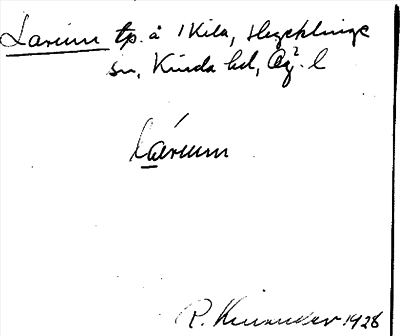 Larum tp. å 1 Kila, Hycklinge
sn, Kinda hd, Ög. l
lárum
R. Kinander 1928